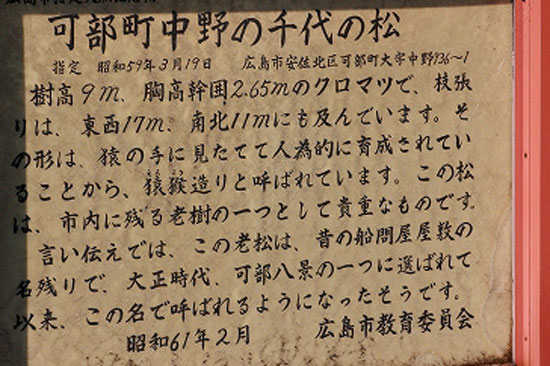 可部町中野の千代の松
指定 昭和59年3月19日 広島市安佐北区可部町大字中野936~1
樹高9m、胸高幹囲2.65mのクロマツで、枝張
りは、東西17m、南北11mにも及んでいます。そ
の形は、猿の手に見たてて人為的に育成されてい
ることから、猿猴造りと呼ばれています。この松
は、市内に残る老樹の一つとして貴重なものです。
言い伝えでは、この老松は、昔の船問屋屋敷の
名残りで、大正時代、可部八景の一つに選ばれて
以来、この名で呼ばれるようになったそうです。
昭和61年2月 広島市教育委員会